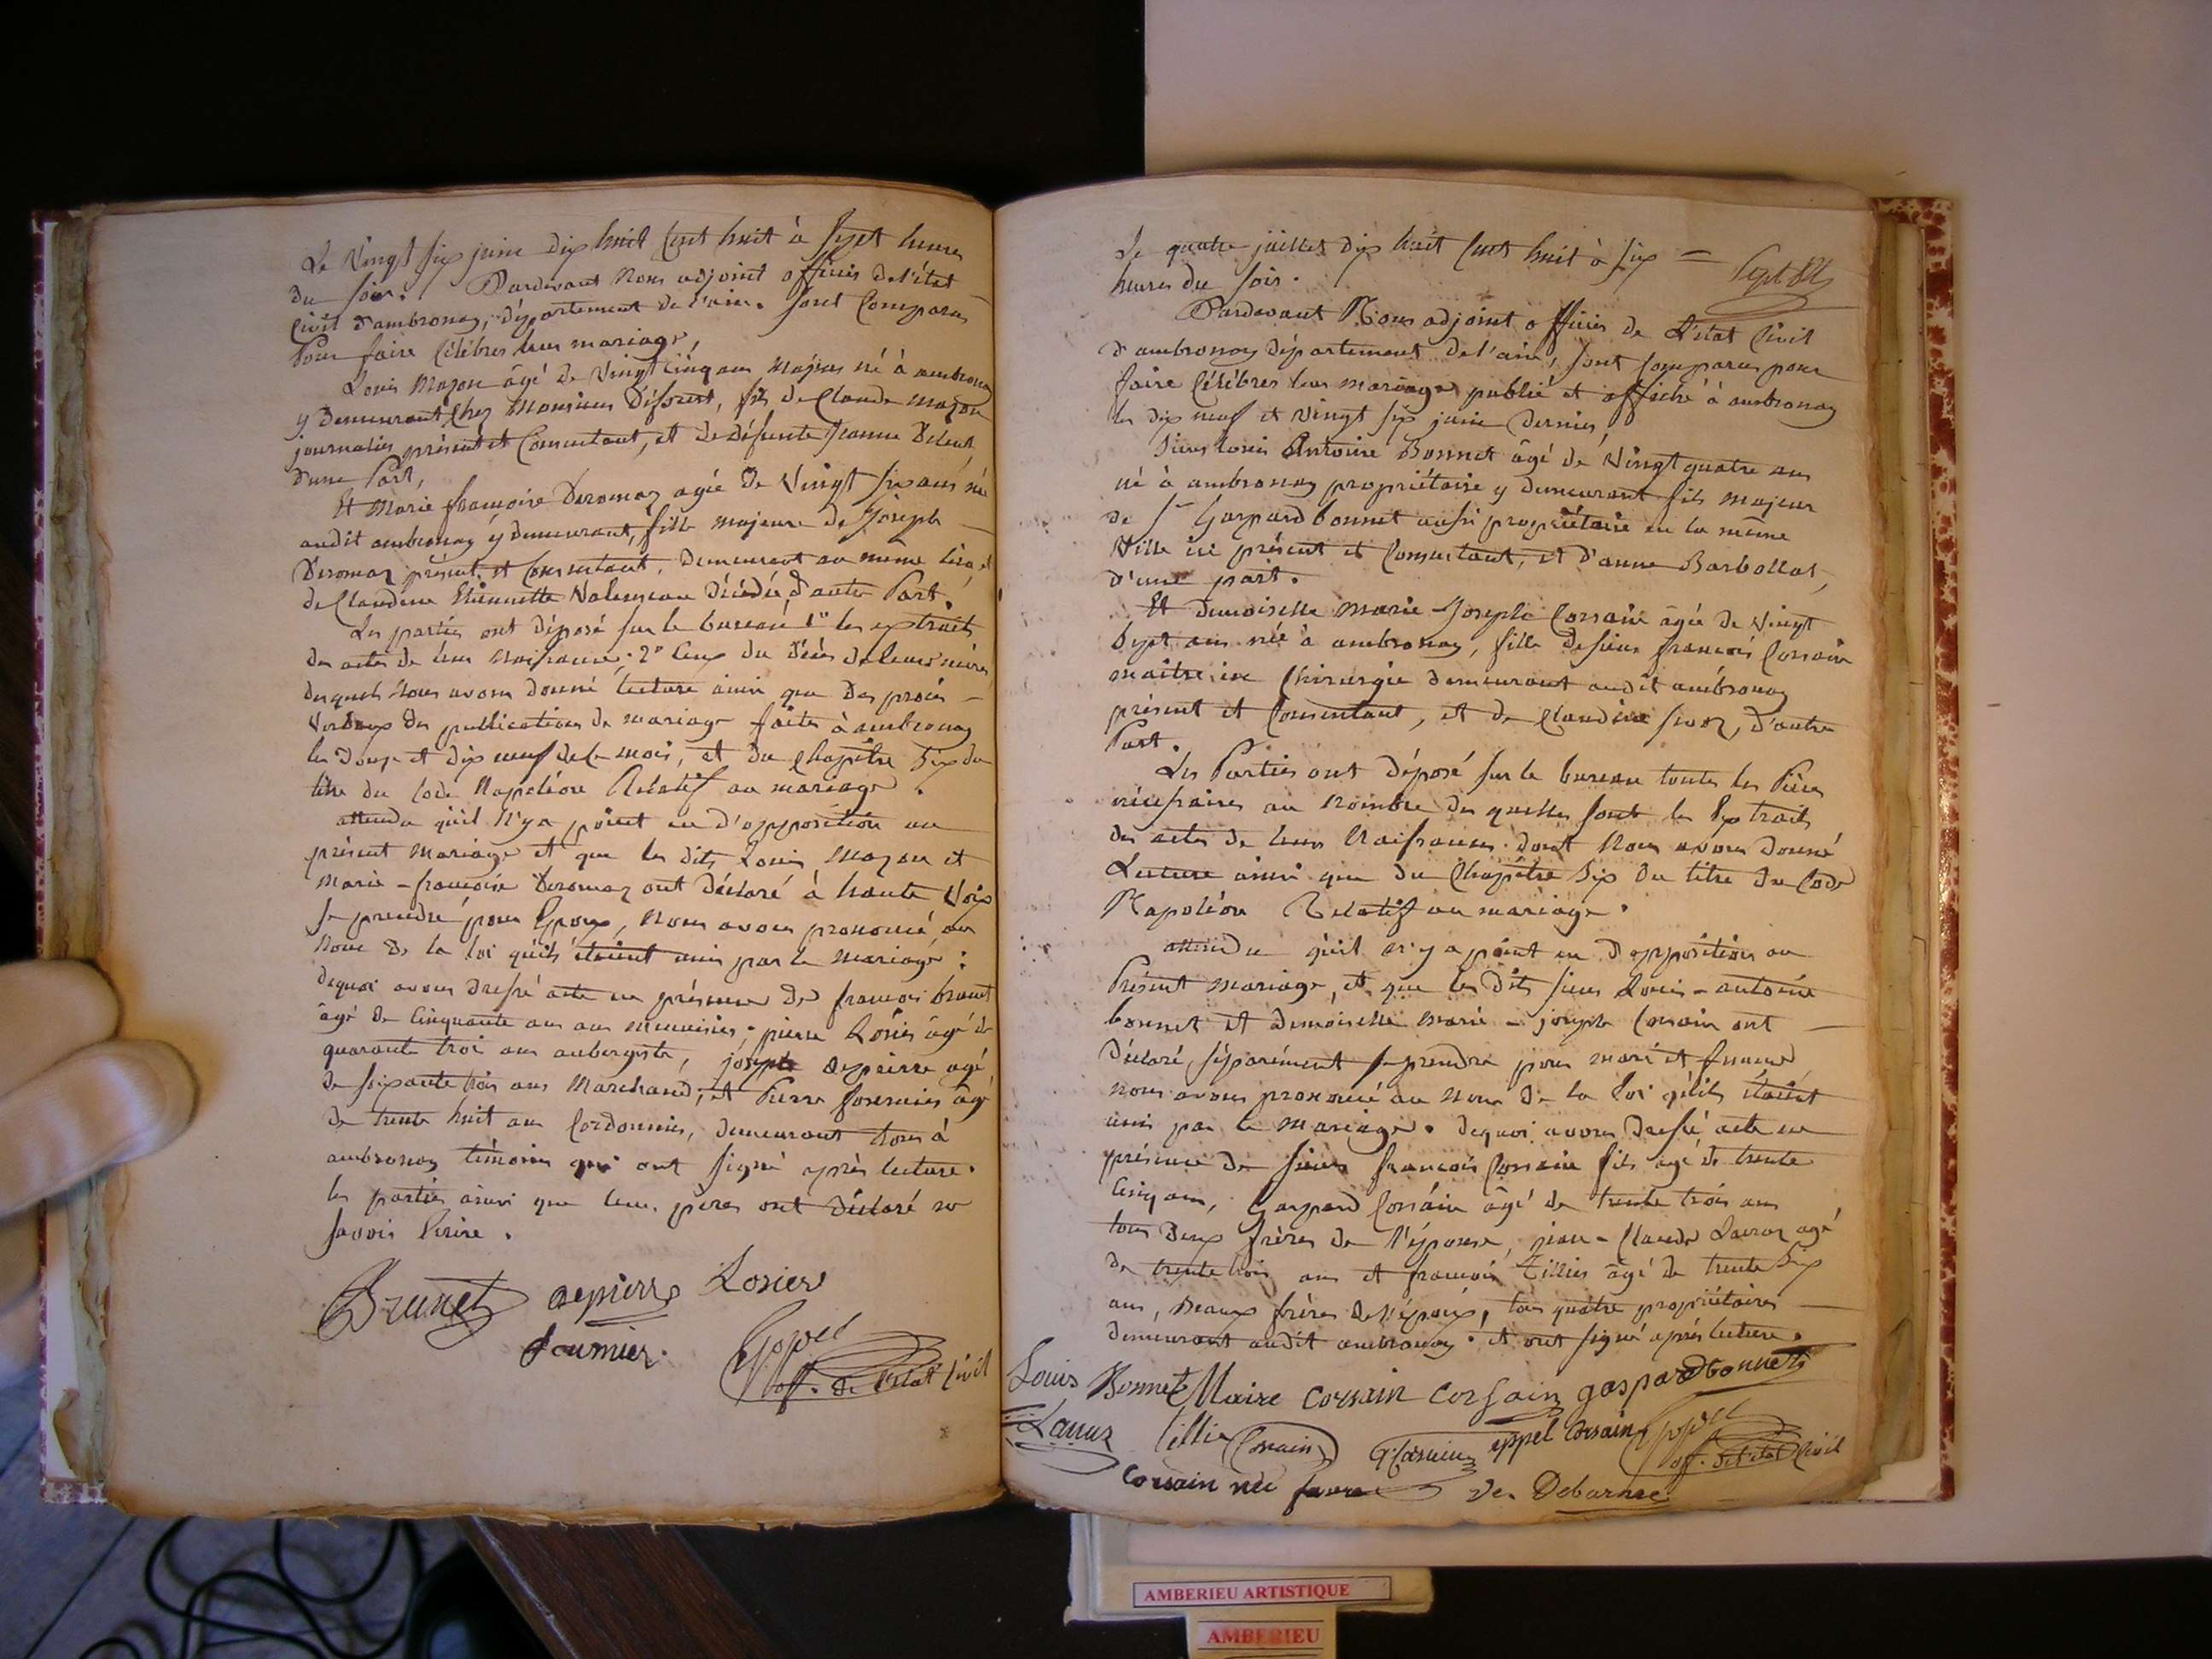 Le Vingt six juin dix huit Cent huit à sept heures
du soir. Pardevant Nous adjoint officier de l'état
Civil d'ambronay, département de l'ain. sont Comparus
Pour faire Célébrer leur mariage,
Louis Mazon âgé de Vingt Cinq ans Majeur né à ambronay
y demeurant chez Monsieur fils de Claude mazon
journalier présent et Consentant, et de défunte Jeanne
d'une Part,
Et Marie françoise Deromaz agée de Vingt six ans née
audit ambronay y demeurant, fille majeure de Joseph
Deromaz présent et Consentant, demeurant au même lieu et
de Claudine Etiennette décédée, d'autre Part.
Les parties ont déposé sur le bureau 1° les extraits
des actes de leur Naissance; 2° Ceux du décès de leurs mères
desquels Nous avons donné lecture ainsi que des procès
Verbaux des publications de mariage faites à ambronay
les douze et dix neuf de Ce mois, et du Chapitre Six du
titre du Code Napoléon Relatif au mariage.
attendu qu'il N'y a point eu d'opposition au
présent Mariage et que les dits Louis Mazon et
Marie-françoise Deromaz ont déclaré à haute Voix
se prendre pour Epoux, Nous avons prononcé au
Nom de la loi qu'ils étoient unis par le mariage;
dequoi avons dressé acte en présence de françois brunet
âgé de Cinquante ans menuisier; pierre Losier âgé de
quarante trois ans aubergiste, joseph depierre agé
de soixante trois ans Marchand, et Pierre fournier âgé
de trente huit ans Cordonnier, demeurant tous à
ambronay témoins qui ont signé après lecture.
les parties ainsi que leurs pères ont déclaré ne
savoir Ecrire.
Brunet depierre Losier
fournier
off. de l'Etat Civil
Le quatre juillet dix huit Cent huit à six —
heures du soir.
Pardevant Nous adjoint officier de L'état Civil
d'ambronay département de l'ain, sont Comparus pour
faire Célébrer leur mariage publié et affiché à ambronay
les dix neuf et vingt six juin dernier,
Sieur Louis Antoine Bonnet âgé de Vingt quatre ans
né à ambronay propriétaire y demeurant fils majeur
de Sr Gaspard bonnet aussi propriétaire en la même
Ville ici présent et Consentant, et d'anne Barbollat,
d'une part.
Et demoiselle Marie-Josephe Corsain âgée de Vingt
Sept ans née à ambronay, fille de sieur françois Corsain
maître en Chirurgie demeurant audit ambronay
présent et Consentant, et de Claudine d'autre
Part.
Les Parties ont déposé sur le bureau toutes les Pièces
nécessaires au Nombre des quelles sont les Extraits
des actes de leurs Naissances dont Nous avons donné
Lecture ainsi que du Chapitre Six du titre du Code
Napoléon Relatif au mariage.
attendu qu'il n'y a point eu d'opposition au
Présent mariage, et que les dits sieur Louis-antoine
bonnet et demoiselle marie-josephe Corsain ont —
déclaré séparément se prendre pour mari et femme
nous avons prononcé au Nom de la loi qu'ils étoient
unis par le mariage. dequoi avons dressé acte en
présence de sieurs françois Corsain fils agé de trente
Cinq ans, Gaspard Corsain âgé de trente trois ans
tous deux frères de l'épouse, jean-Claude Lauraz agé
de trente trois ans et françois Tillier âgé de trente Six
ans, Beaux frères de l'époux, tous quatre propriétaires —
demeurant audit ambronay. et ont signé après lecture.
Louis Bonnet Marie Corsain Corsain gaspard bonnet
Corsain Corsain
off. de l'état Civil
Corsain née favre
AMBERIEU ARTISTIQUE
AMBERIEU